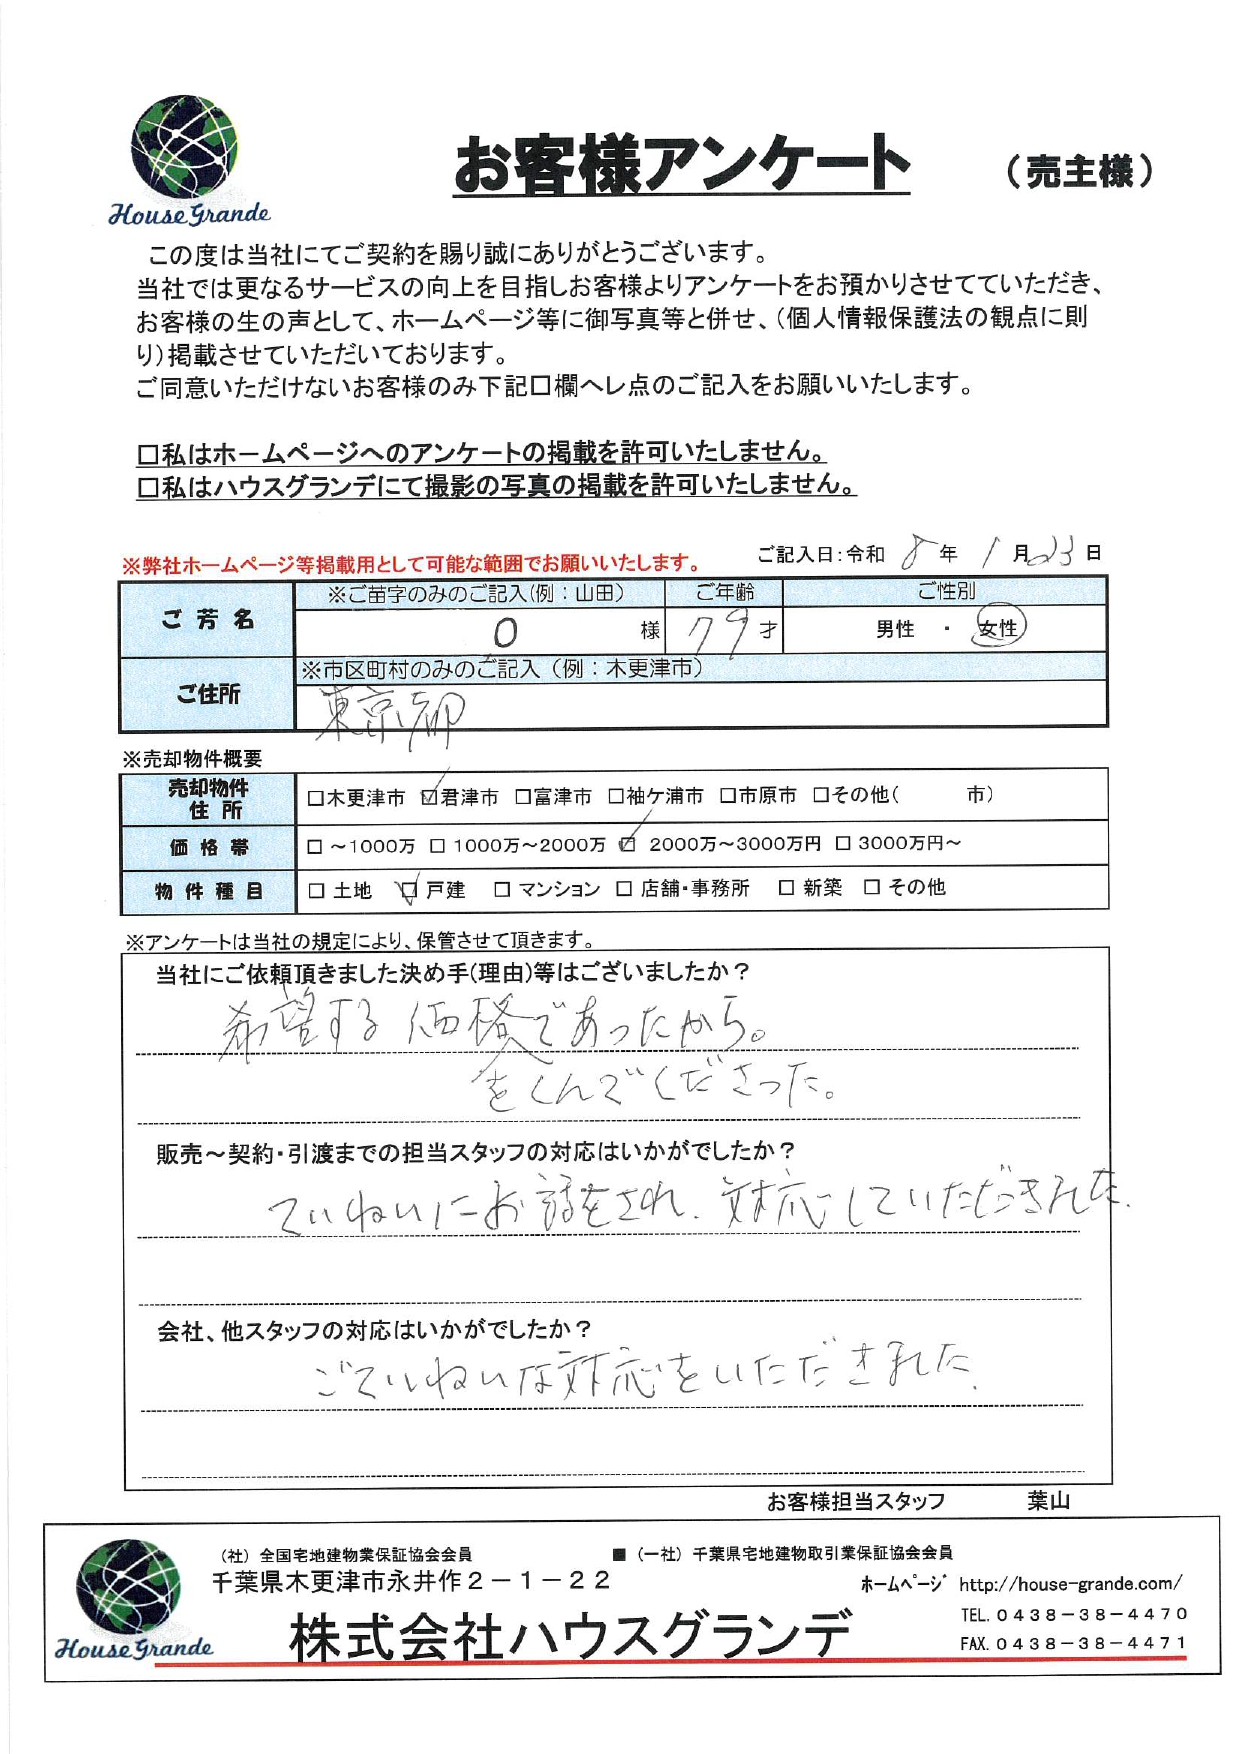 House Grande
お客様アンケート (売主様)
この度は当社にてご契約を賜り誠にありがとうございます。
当社では更なるサービスの向上を目指しお客様よりアンケートをお預かりさせてていただき、
お客様の生の声として、ホームページ等に御写真等と併せ、(個人情報保護法の観点に則
り)掲載させていただいております。
ご同意いただけないお客様のみ下記口欄へレ点のご記入をお願いいたします。
□私はホームページへのアンケートの掲載を許可いたしません。
□私はハウスグランデにて撮影の写真の掲載を許可いたしません。
※弊社ホームページ等掲載用として可能な範囲でお願いいたします。 ご記入日:令和 8 年 1 月 23 日
ご芳名 ※ご苗字のみのご記入(例:山田) ご年齢 ご性別
O 様 79 才 男性 ・ 女性
ご住所 ※市区町村のみのご記入(例:木更津市)
東京都
※売却物件概要
売却物件住所 □木更津市 ☑君津市 □富津市 □袖ケ浦市 □市原市 □その他( 市)
価格帯 □ ～1000万 □ 1000万～2000万 ☑ 2000万～3000万円 □ 3000万円～
物件種目 □ 土地 ☑ 戸建 □ マンション □ 店舗・事務所 □ 新築 □ その他
※アンケートは当社の規定により、保管させて頂きます。
当社にご依頼頂きました決め手(理由)等はございましたか?
希望する価格であったから。
をくんでくださった。
販売～契約・引渡までの担当スタッフの対応はいかがでしたか?
ていねいにお話をされ、対応していただきされた.
会社、他スタッフの対応はいかがでしたか?
ごていねいな対応をいただきされた.
お客様担当スタッフ 葉山
House Grande
(社)全国宅地建物業保証協会会員 ■(一社)千葉県宅地建物取引業保証協会会員
千葉県木更津市永井作2-1-22 ホームページ http://house-grande.com/
株式会社ハウスグランデ
TEL.0438-38-4470
FAX.0438-38-4471